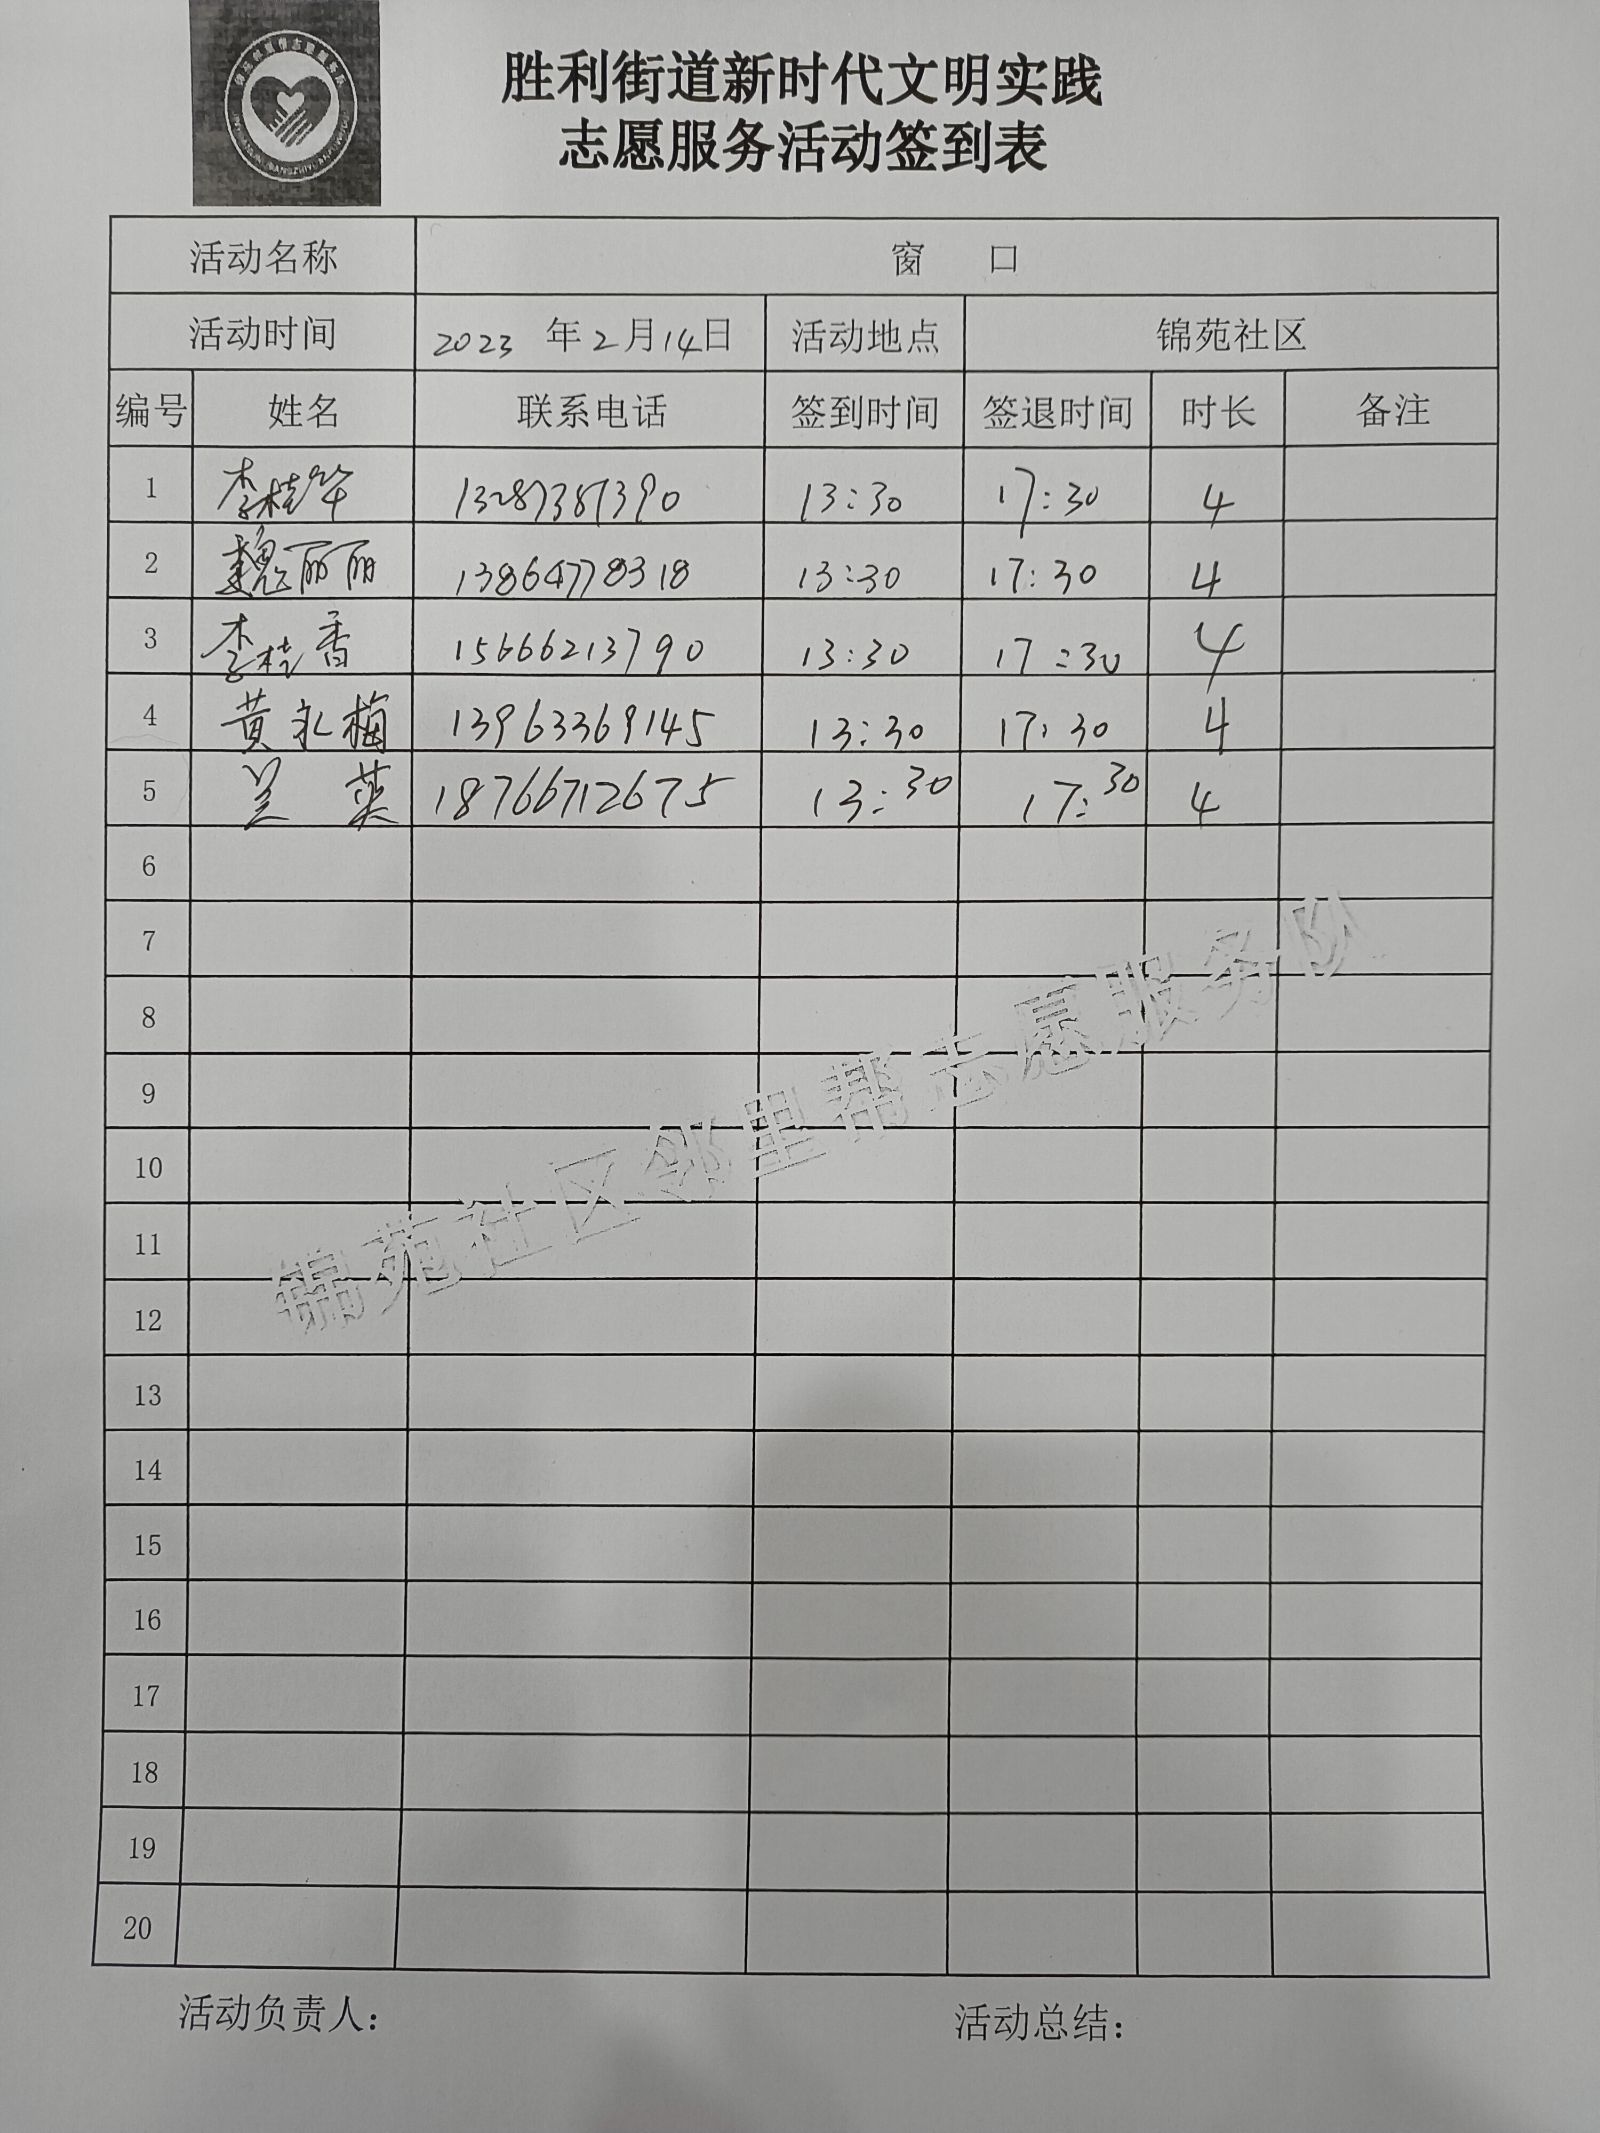 胜利街道新时代文明实践
志愿服务活动签到表
活动名称 窗 口
活动时间 2023 年 2 月 14 日 活动地点 锦苑社区
编号 姓名 联系电话 签到时间 签退时间 时长 备注
1 李桂华 13:30 17:30 4
2 魏丽丽 13864778318 13:30 17:30 4
3 李桂香 15666213790 13:30 17:30 4
4 黄礼梅 13963369145 13:30 17:30 4
5 兰英 18766712675 13:30 17:30 4
6
7
8
9
10
11
12
13
14
15
16
17
18
19
20
锦苑社区邻里帮志愿服务队
活动负责人：
活动总结：